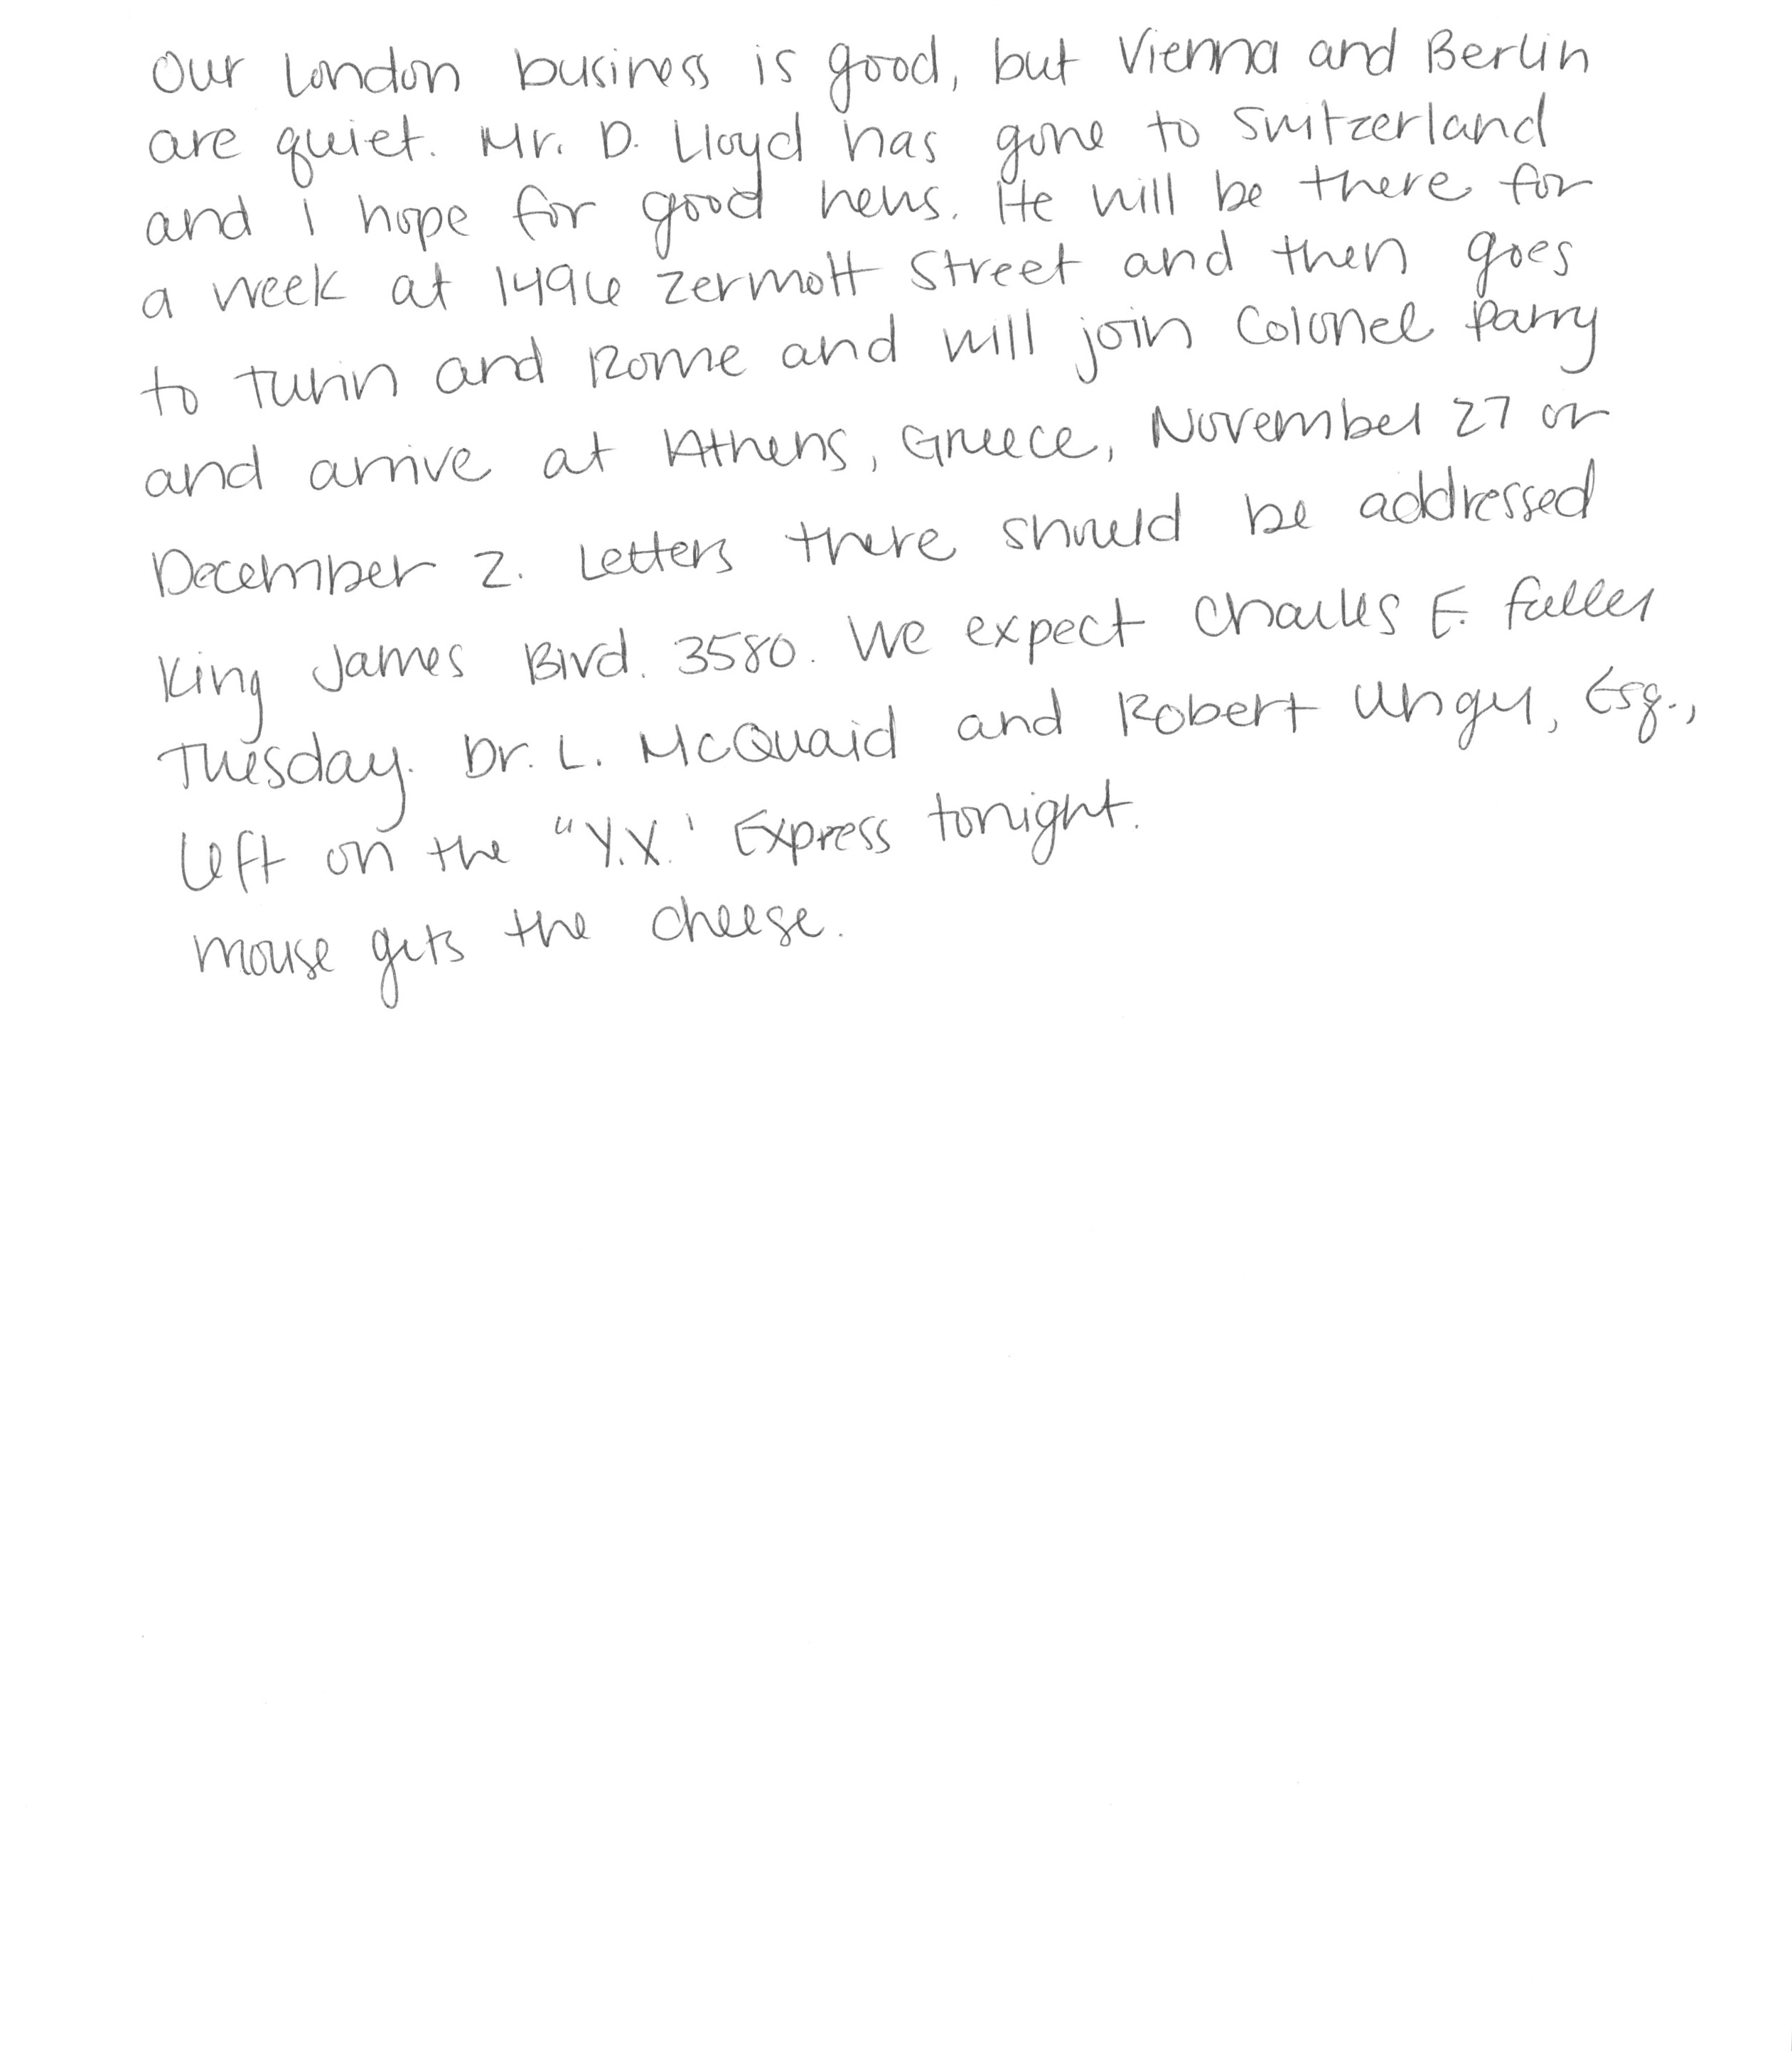 Our London business is good, but Vienna and Berlin
are quiet. Mr. D. Lloyd has gone to Switzerland
and I hope for good news. He will be there for
a week at 1496 Zermott Street and then goes
to Turin and Rome and will join Colonel Parry
and arrive at Athens, Greece, November 27 or
December 2. Letters there should be addressed
King James Blvd. 3580. We expect Charles E. Fuller
Tuesday. Dr. L. McQuaid and Robert Unger, Esq.,
left on the "Y.X.' Express tonight.
mouse gets the cheese.